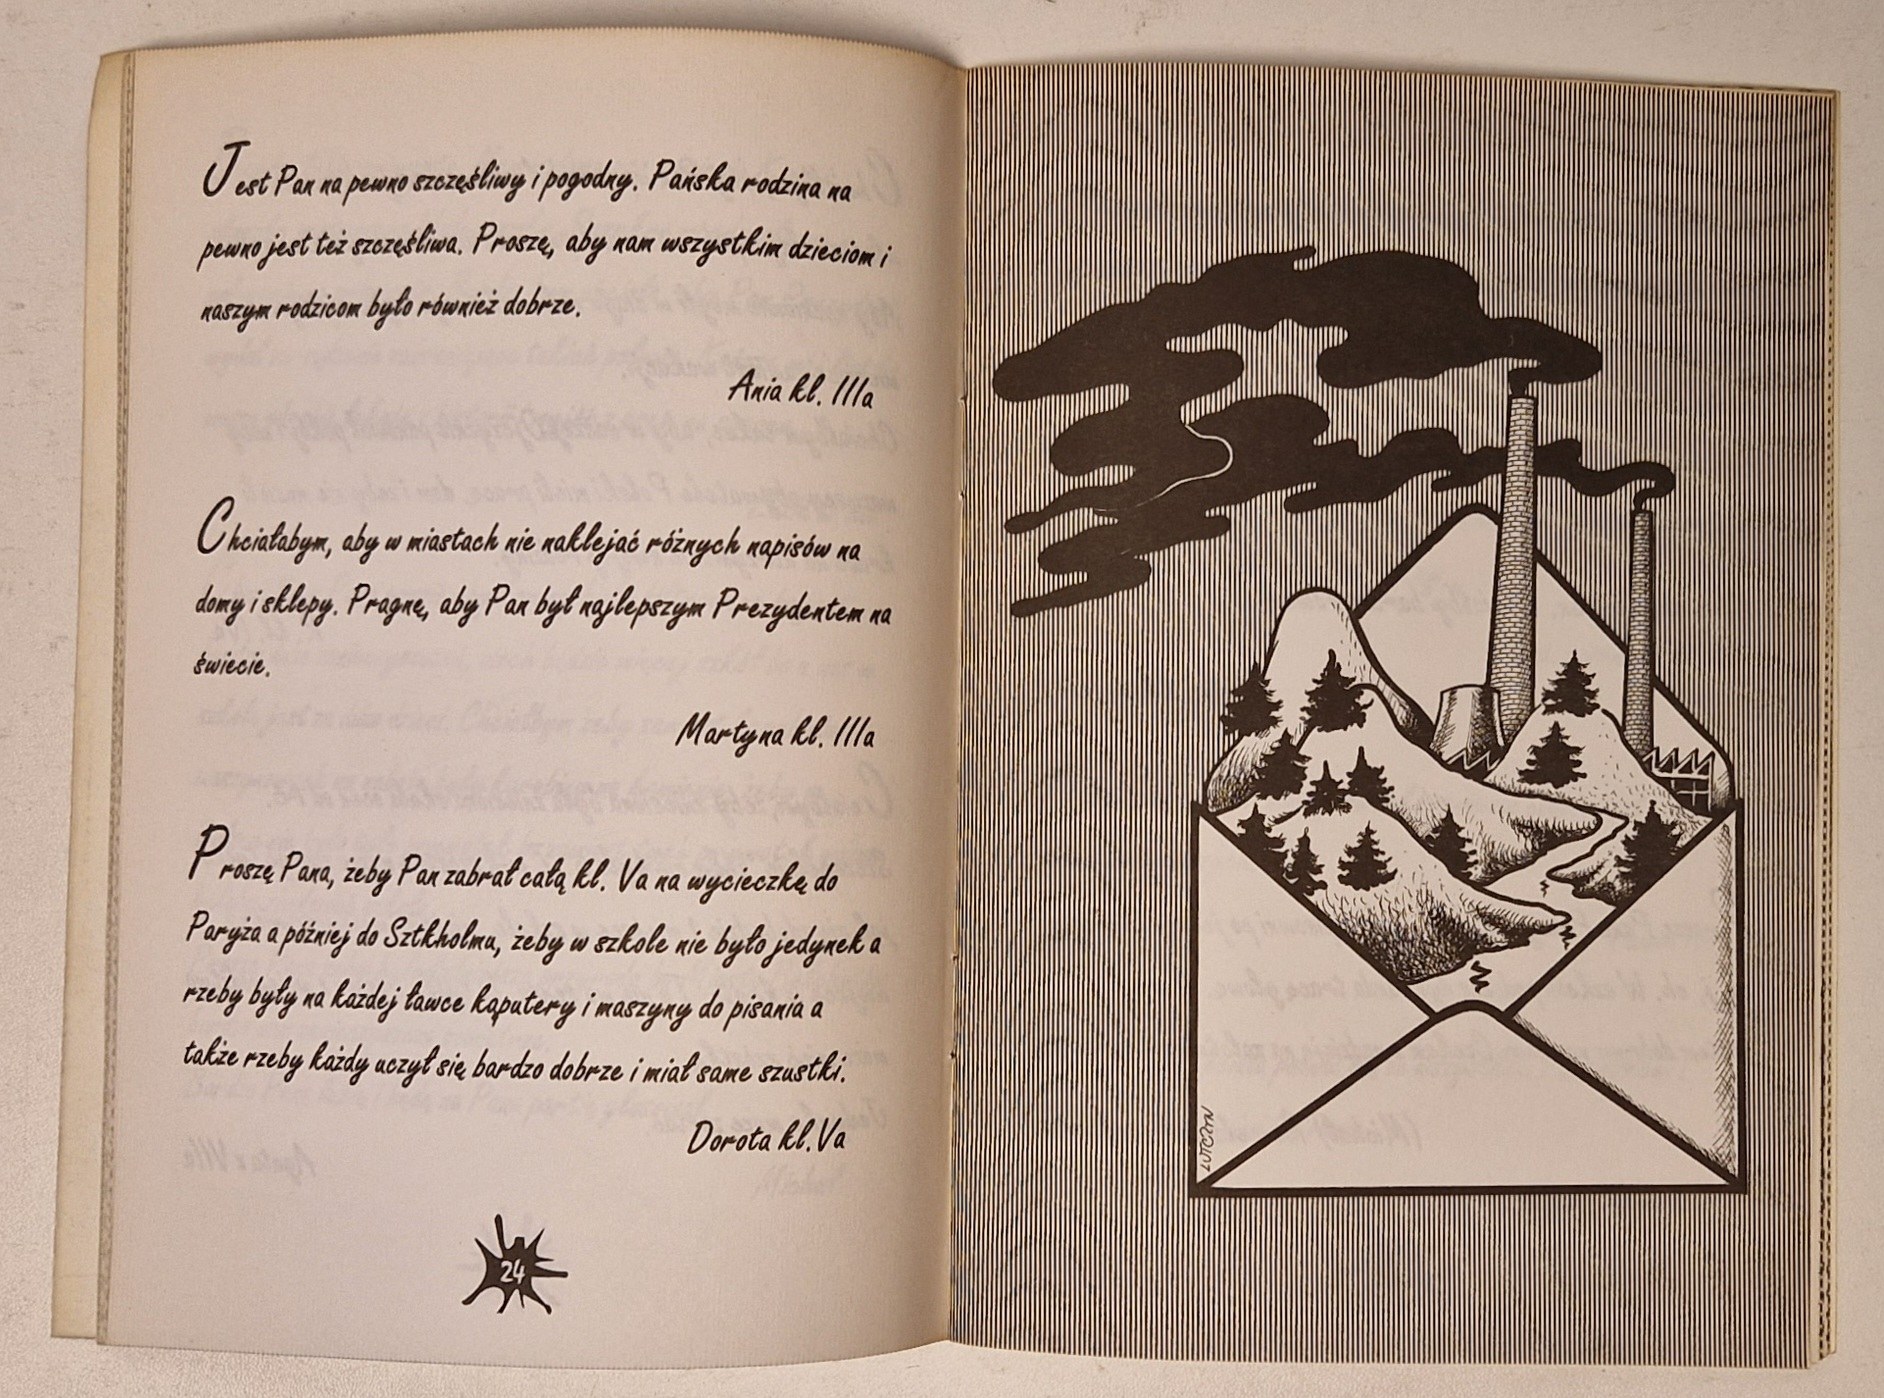 Jest Pan na pewno szczęśliwy i pogodny. Pańska rodzina na
pewno jest też szczęśliwa. Proszę, aby nam wszystkim dzieciom i
naszym rodzicom było również dobrze.
Ania kl. IIIa
Chciałabym, aby w miastach nie naklejać różnych napisów na
domy i sklepy. Pragnę, aby Pan był najlepszym Prezydentem na
świecie.
Martyna kl. IIIa
Proszę Pana, żeby Pan zabrał całą kl. Va na wycieczkę do
Paryża a później do Sztkholmu, żeby w szkole nie było jedynek a
rzeby były na każdej ławce kąputery i maszyny do pisania a
także rzeby każdy uczył się bardzo dobrze i miał same szustki.
Dorota kl. Va
24
LUTCZYN